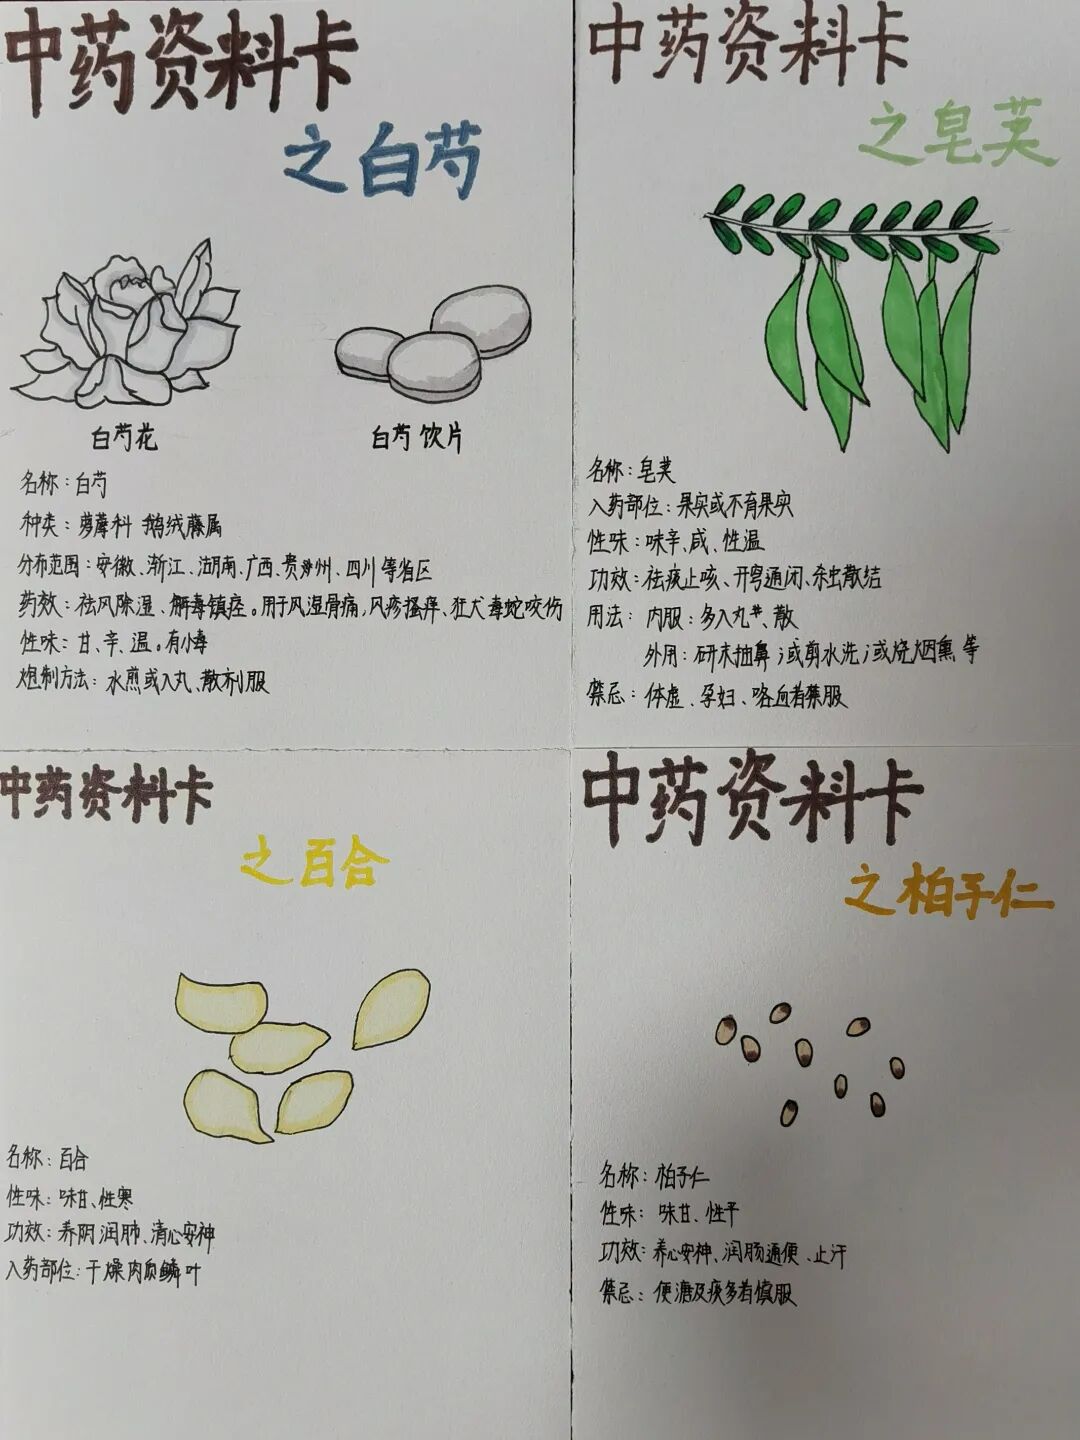 中药资料卡
之白芍
白芍花
白芍饮片
名称：白芍
种类：萝藦科 鹅绒藤属
分布范围：安徽、浙江、湖南、广西、贵州、四川等省区
药效：祛风除湿、解毒镇痉。用于风湿骨痛，风疹搔痒、狂犬毒蛇咬伤
性味：甘、辛、温。有小毒
炮制方法：水煎或入丸、散剂服
中药资料卡
之皂荚
名称：皂荚
入药部位：果实或不育果实
性味：味辛、咸、性温
功效：祛痰止咳、开窍通闭、杀虫散结
用法：内服：多入丸、散
外用：研末抽鼻；或剪水洗；或烧烟熏 等
禁忌：体虚、孕妇、咯血者禁服
中药资料卡
之百合
名称：百合
性味：味甘、性寒
功效：养阴润肺、清心安神
入药部位：干燥肉质鳞叶
中药资料卡
之柏子仁
名称：柏子仁
性味：味甘、性平
功效：养心安神、润肠通便、止汗
禁忌：便溏及痰多者慎服